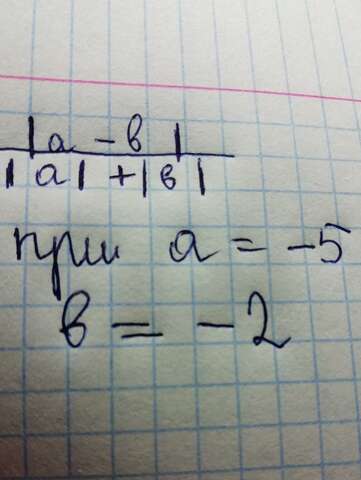 |a - в|
|a| + |в|
при a = -5
в = -2